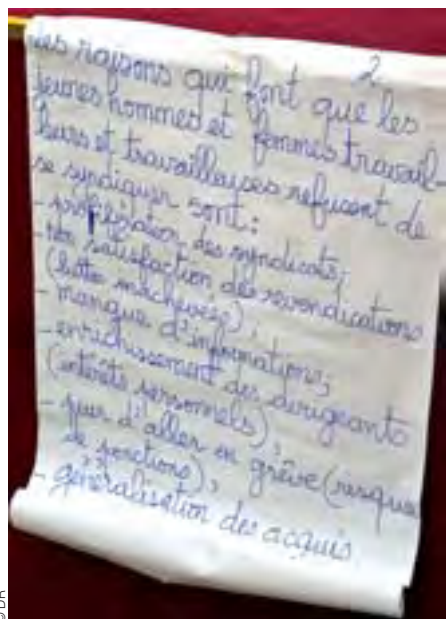 2
Les raisons qui font que les
jeunes hommes et femmes travail-
leurs et travailleuses refusent de
se syndiquer sont :
- prolifération des syndicats ;
- non satisfaction des revendications
(lutte inachevée) ;
- manque d'informations ;
- enrichissement des dirigeants
(intérêts personnels)
- peur d'aller en grève (risque
de ponctions) ;
- généralisation des acquis
© DR